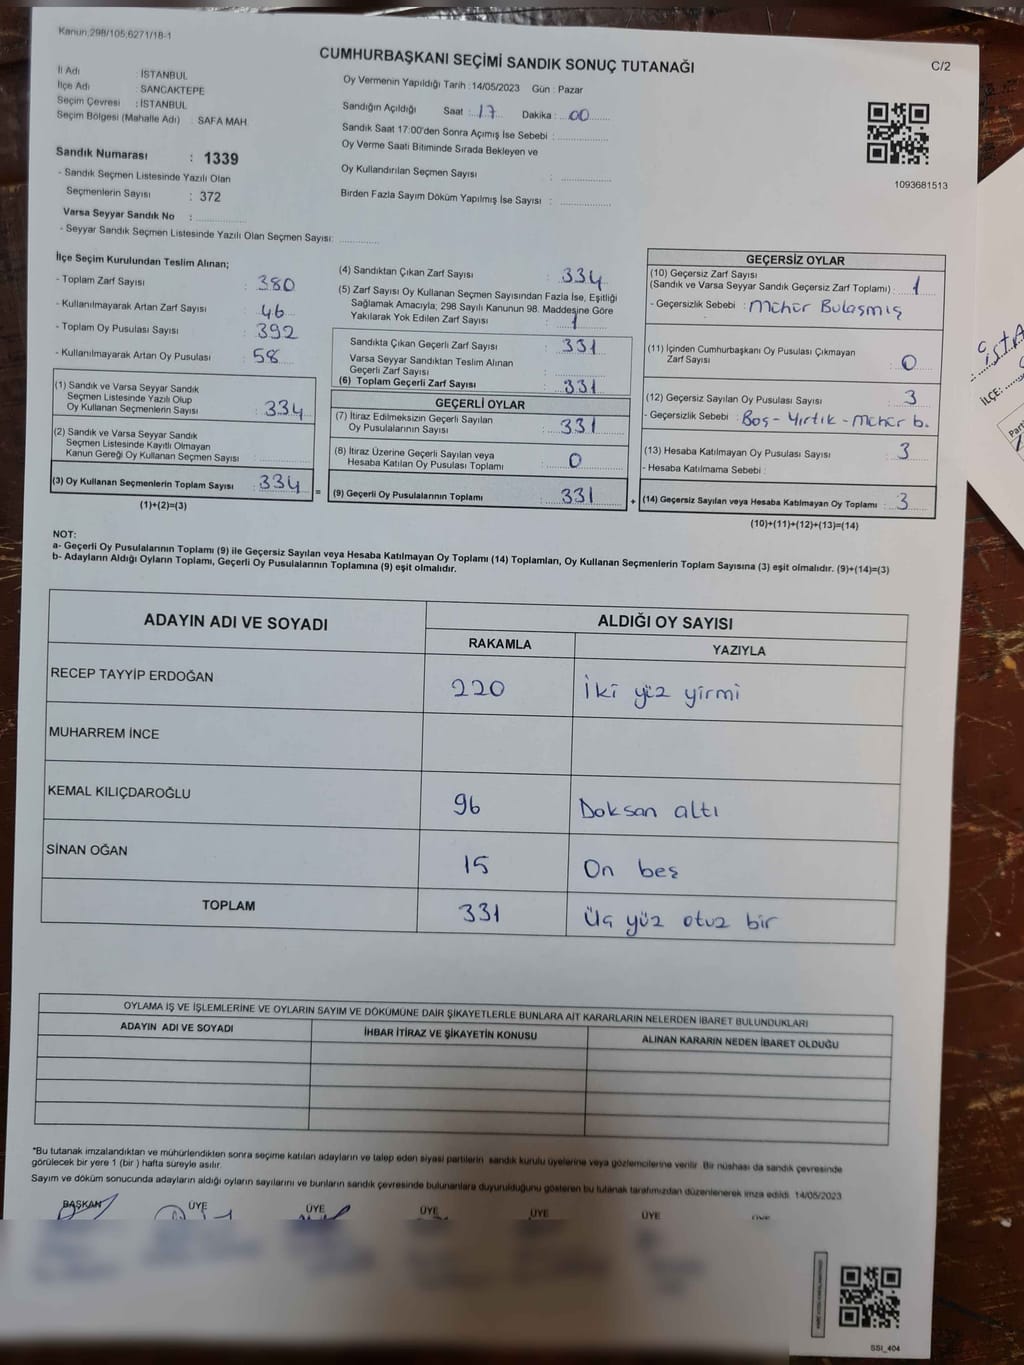 Kanun;298/105;6271/18-1
CUMHURBAŞKANI SEÇİMİ SANDIK SONUÇ TUTANAĞI
C/2
İl Adı : İSTANBUL
İlçe Adı : SANCAKTEPE
Seçim Çevresi : İSTANBUL
Seçim Bölgesi (Mahalle Adı) : SAFA MAH.
Sandık Numarası : 1339
- Sandık Seçmen Listesinde Yazılı Olan
Seçmenlerin Sayısı : 372
Varsa Seyyar Sandık No :
- Seyyar Sandık Seçmen Listesinde Yazılı Olan Seçmen Sayısı:
Oy Vermenin Yapıldığı Tarih : 14/05/2023 Gün : Pazar
Sandığın Açıldığı Saat : 17 Dakika : 00
Sandık Saat 17:00'den Sonra Açımış İse Sebebi :
Oy Verme Saati Bitiminde Sırada Bekleyen ve
Oy Kullandırılan Seçmen Sayısı :
Birden Fazla Sayım Döküm Yapılmış İse Sayısı :
1093681513
İlçe Seçim Kurulundan Teslim Alınan;
- Toplam Zarf Sayısı : 380
- Kullanılmayarak Artan Zarf Sayısı : 46
- Toplam Oy Pusulası Sayısı : 392
- Kullanılmayarak Artan Oy Pusulası : 58
(1) Sandık ve Varsa Seyyar Sandık
Seçmen Listesinde Yazılı Olup
Oy Kullanan Seçmenlerin Sayısı : 334
(2) Sandık ve Varsa Seyyar Sandık
Seçmen Listesinde Kayıtlı Olmayan
Kanun Gereği Oy Kullanan Seçmen Sayısı :
(3) Oy Kullanan Seçmenlerin Toplam Sayısı : 334
(1)+(2)=(3)
=
(4) Sandıktan Çıkan Zarf Sayısı : 334
(5) Zarf Sayısı Oy Kullanan Seçmen Sayısından Fazla İse, Eşitliği
Sağlamak Amacıyla; 298 Sayılı Kanunun 98. Maddesine Göre
Yakılarak Yok Edilen Zarf Sayısı : 1
Sandıkta Çıkan Geçerli Zarf Sayısı : 331
Varsa Seyyar Sandıktan Teslim Alınan
Geçerli Zarf Sayısı :
(6) Toplam Geçerli Zarf Sayısı : 331
GEÇERLİ OYLAR
(7) İtiraz Edilmeksizin Geçerli Sayılan
Oy Pusulalarının Sayısı : 331
(8) İtiraz Üzerine Geçerli Sayılan veya
Hesaba Katılan Oy Pusulası Toplamı : 0
(9) Geçerli Oy Pusulalarının Toplamı : 331
+
GEÇERSİZ OYLAR
(10) Geçersiz Zarf Sayısı
(Sandık ve Varsa Seyyar Sandık Geçersiz Zarf Toplamı) : 1
- Geçersizlik Sebebi : Mühür Bulaşmış
(11) İçinden Cumhurbaşkanı Oy Pusulası Çıkmayan
Zarf Sayısı : 0
(12) Geçersiz Sayılan Oy Pusulası Sayısı : 3
- Geçersizlik Sebebi : Boş - Yırtık - Mühür b.
(13) Hesaba Katılmayan Oy Pusulası Sayısı : 3
- Hesaba Katılmama Sebebi :
(14) Geçersiz Sayılan veya Hesaba Katılmayan Oy Toplamı : 3
(10)+(11)+(12)+(13)=(14)
NOT:
a- Geçerli Oy Pusulalarının Toplamı (9) ile Geçersiz Sayılan veya Hesaba Katılmayan Oy Toplamı (14) Toplamları, Oy Kullanan Seçmenlerin Toplam Sayısına (3) eşit olmalıdır. (9)+(14)=(3)
b- Adayların Aldığı Oyların Toplamı, Geçerli Oy Pusulalarının Toplamına (9) eşit olmalıdır.
ADAYIN ADI VE SOYADI ALDIĞI OY SAYISI
RAKAMLA YAZIYLA
RECEP TAYYİP ERDOĞAN 220 İki yüz yirmi
MUHARREM İNCE
KEMAL KILIÇDAROĞLU 96 Doksan altı
SİNAN OĞAN 15 On beş
TOPLAM 331 Üç yüz otuz bir
OYLAMA İŞ VE İŞLEMLERİNE VE OYLARIN SAYIM VE DÖKÜMÜNE DAİR ŞİKAYETLERLE BUNLARA AİT KARARLARIN NELERDEN İBARET BULUNDUKLARI
ADAYIN ADI VE SOYADI İHBAR İTİRAZ VE ŞİKAYETİN KONUSU ALINAN KARARIN NEDEN İBARET OLDUĞU
*Bu tutanak imzalandıktan ve mühürlendikten sonra seçime katılan adayların ve talep eden siyasi partilerin sandık kurulu üyelerine veya gözlemcilerine verilir. Bir nüshası da sandık çevresinde
görülecek bir yere 1 (bir) hafta süreyle asılır.
Sayım ve döküm sonucunda adayların aldığı oyların sayılarını ve bunların sandık çevresinde bulunanlara duyurulduğunu gösteren bu tutanak tarafımızdan düzenlenerek imza edildi. 14/05/2023
BAŞKAN ÜYE ÜYE ÜYE ÜYE ÜYE
SSI_404
İLÇE: